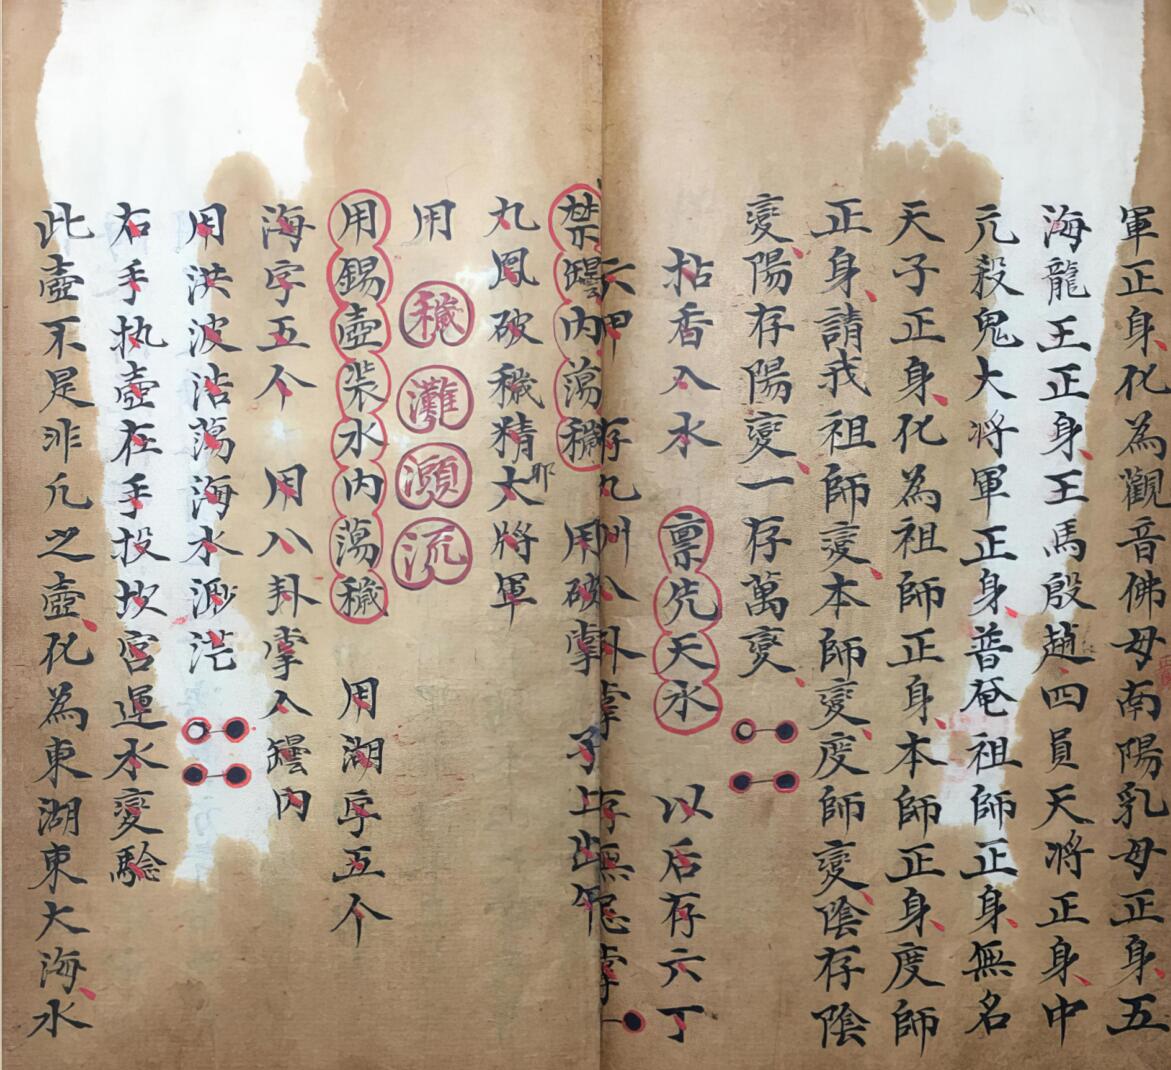 軍正身化為觀音佛母南陽乳母正身五
海龍王正身王馬殷趙四員天將正身中
元殺鬼大將軍正身普奄祖師正身無名
天子正身化為祖師正身本師正身度師
正身請戎祖師变本師变度師变陰存陰
变陽存陽变一存萬变
拈香入水 禀先天水 以后存六丁
六甲 存九州八卦掌 存無忌掌
禁罈内蕩穢 用破掌 子上出午
九鳳破穢精邪大將軍
用 穢 灘 澦 流
用錫壺裝水内蕩穢 用湖字五个
海字五个 用八卦掌入罈内
用洪波浩蕩海水渺茫
右手执壺在手投坎宮運水变驗
此壺不是非凢之壺化為東湖東大海水